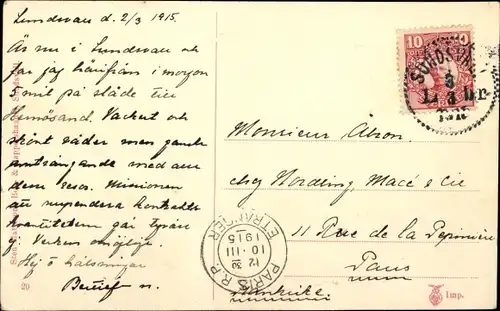 Sundsvall d. 2/3 1915.
Är nu i Sundsvall och
far jag härifrån i morgon
5 mil på släde till
Hernösand. Vackert och
skönt väder men ganska
ansträngande med alla
dessa resor. Missionen
att suspendera kontrakt
går trögt
ej Verkan möjlig.
Hej o hälsningar
20
10
SUNDSVALL
3
L 3 br
Monsieur Abron.
chez Nording, Macé & Cie
11 Rue de la Pépinière
Paris
Frankrike.
PARIS R.P.
ETRANGER
12 30
10 - III
1915
Imp.